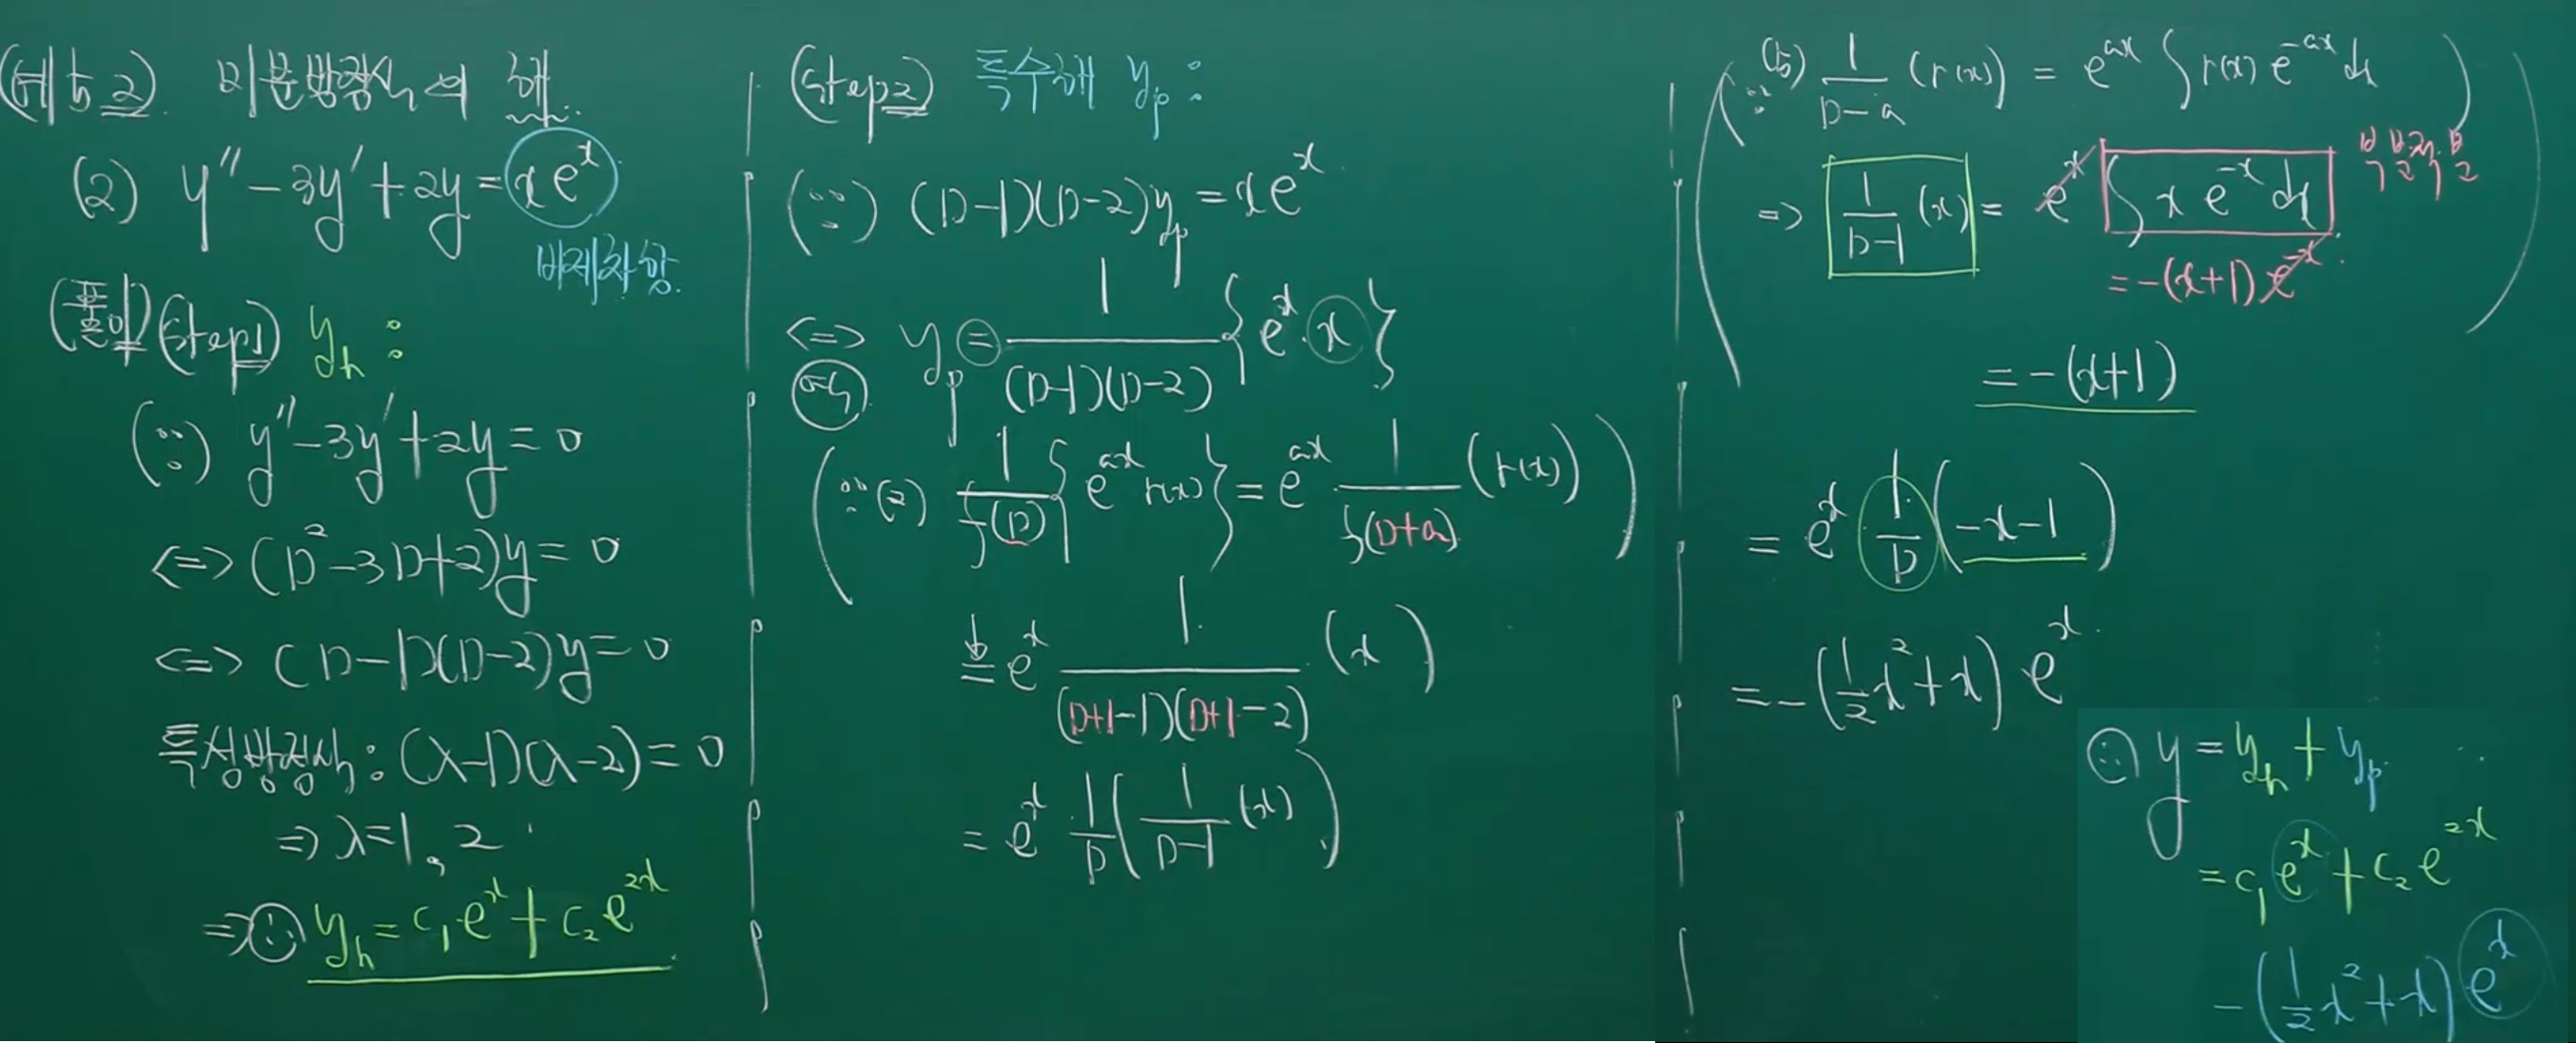 (예제 2) 미분방정식의 해
(2) y'' - 3y' + 2y = xe^x
비제차항.
(풀이) (step1) y_h :
(∵) y'' - 3y' + 2y = 0
<=> (D^2 - 3D + 2)y = 0
<=> (D-1)(D-2)y = 0
특성방정식 : (λ-1)(λ-2) = 0
=> λ = 1, 2
=> ∴ y_h = c_1 e^x + c_2 e^{2x}
(Step2) 특수해 y_p :
(∵) (D-1)(D-2)y_p = xe^x
<=> y_p = 1/((D-1)(D-2)) { e^x · x }
(∵(2) 1/f(D) { e^{ax} r(x) } = e^{ax} 1/f(D+a) (r(x)) )
= e^x 1/((D+1-1)(D+1-2)) (x)
= e^x 1/D ( 1/(D-1) (x) )
(∵ (5) 1/(D-a) (r(x)) = e^{ax} ∫ r(x) e^{-ax} dx
=> 1/(D-1) (x) = e^x ∫ x e^{-x} dx
= -(x+1) e^{-x} . )
= -(x+1)
= e^x 1/D (-x-1)
= -(1/2 x^2 + x) e^x .
∴ y = y_h + y_p
= c_1 e^x + c_2 e^{2x}
- (1/2 x^2 + x) e^x